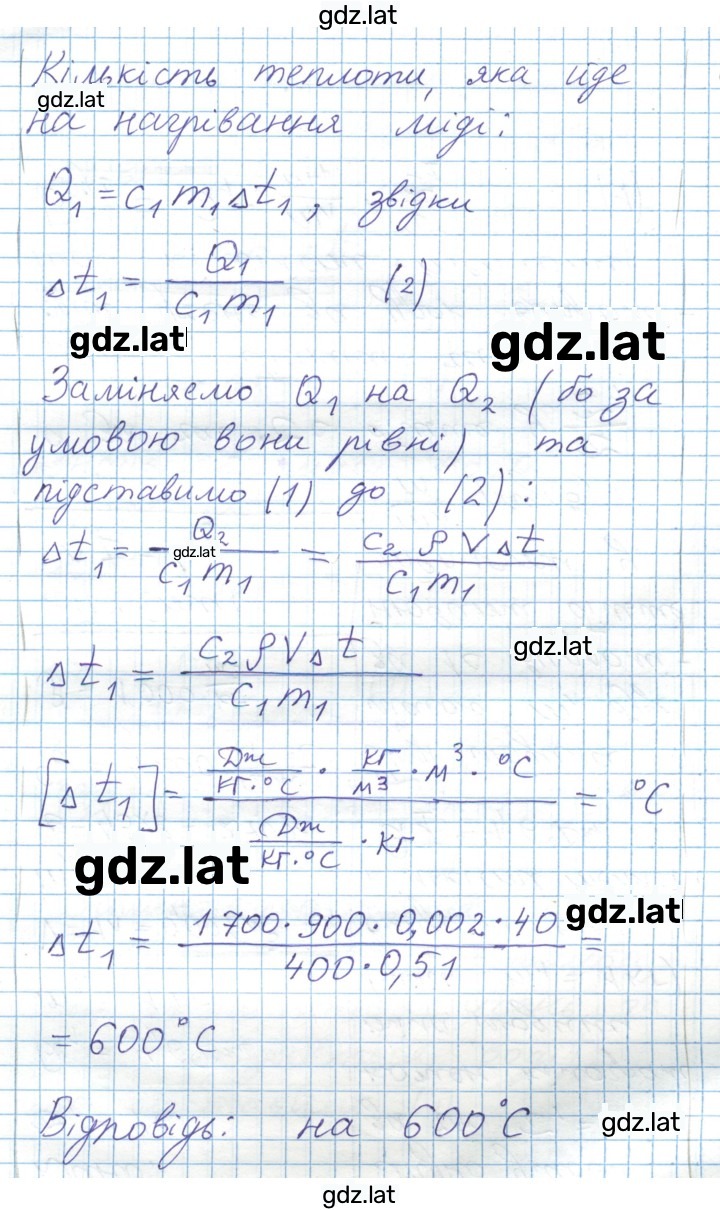 gdz.lat
Кількість теплоти, яка йде
gdz.lat
на нагрівання міді:
Q₁ = c₁m₁Δt₁, звідки
Δt₁ = Q₁ / c₁m₁ (2)
gdz.lat gdz.lat
Заміняємо Q₁ на Q₂ (бо за
умовою вони рівні) та
підставимо (1) до (2):
Δt₁ = Q₂ / c₁m₁ = c₂ρVΔt / c₁m₁
gdz.lat
Δt₁ = c₂ρVΔt / c₁m₁
gdz.lat
[Δt₁] = (Дж/кг·°С · кг/м³ · м³ · °С) / (Дж/кг·°С · кг) = °С
gdz.lat
Δt₁ = 1700·900·0,002·40 / 400·0,51 =
gdz.lat
= 600°С
Відповідь: на 600°С
gdz.lat
gdz.lat